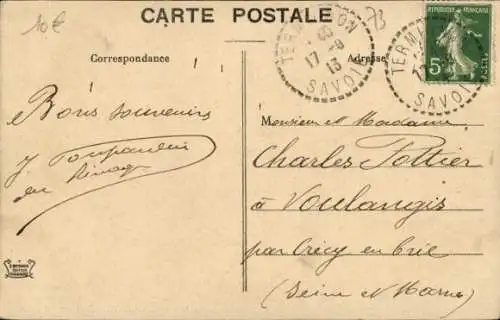 10€
CARTE POSTALE
73
Correspondance
Adresse
TERMIGNON
17 -9
13
SAVOIE
TERMI
SAVOIE
REPUBLIQUE FRANÇAISE
5c
Bons souvenirs
J
du
Monsieur et Madame
Charles Pottier
à Voulangis
par Crécy en Brie
(Seine et Marne)